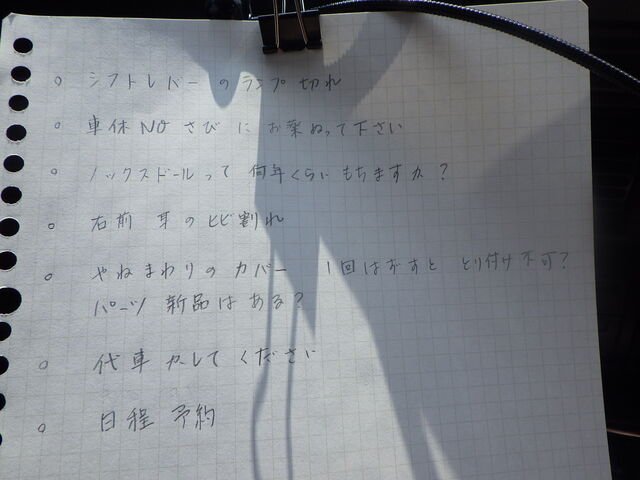 ○ シフトレバーのランプ切れ
○ 車体NOさびにお薬ぬって下さい
○ ノックスドールって何年くらいもちますか?
○ 右前耳のヒビ割れ
○ やねまわりのカバー 1回はずすととり付け不可?
パーツ新品はある?
○ 代車かしてください
○ 日程予約